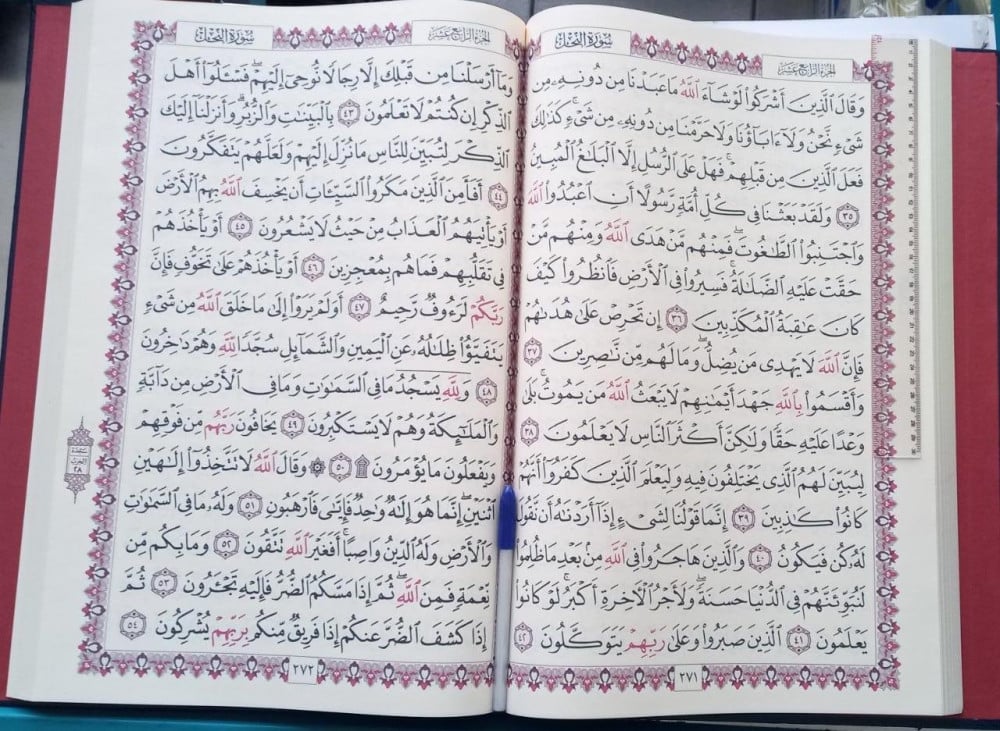 سُورَةُ النَّحْلِ
الجُزْءُ الرَّابِعَ عَشَرَ
وَقَالَ ٱلَّذِينَ أَشْرَكُوا۟ لَوْ شَآءَ ٱللَّهُ مَا عَبَدْنَا مِن دُونِهِۦ مِن
شَىْءٍ نَّحْنُ وَلَآ ءَابَآؤُنَا وَلَا حَرَّمْنَا مِن دُونِهِۦ مِن شَىْءٍ كَذَٰلِكَ
فَعَلَ ٱلَّذِينَ مِن قَبْلِهِمْ فَهَلْ عَلَى ٱلرُّسُلِ إِلَّا ٱلْبَلَٰغُ ٱلْمُبِينُ
٣٥ وَلَقَدْ بَعَثْنَا فِى كُلِّ أُمَّةٍ رَّسُولًا أَنِ ٱعْبُدُوا۟ ٱللَّهَ
وَٱجْتَنِبُوا۟ ٱلطَّٰغُوتَ فَمِنْهُم مَّنْ هَدَى ٱللَّهُ وَمِنْهُم مَّنْ
حَقَّتْ عَلَيْهِ ٱلضَّلَٰلَةُ فَسِيرُوا۟ فِى ٱلْأَرْضِ فَٱنظُرُوا۟ كَيْفَ
كَانَ عَٰقِبَةُ ٱلْمُكَذِّبِينَ ٣٦ إِن تَحْرِصْ عَلَىٰ هُدَىٰهُمْ
فَإِنَّ ٱللَّهَ لَا يَهْدِى مَن يُضِلُّ وَمَا لَهُم مِّن نَّٰصِرِينَ ٣٧
وَأَقْسَمُوا۟ بِٱللَّهِ جَهْدَ أَيْمَٰنِهِمْ لَا يَبْعَثُ ٱللَّهُ مَن يَمُوتُ بَلَىٰ
وَعْدًا عَلَيْهِ حَقًّا وَلَٰكِنَّ أَكْثَرَ ٱلنَّاسِ لَا يَعْلَمُونَ ٣٨
لِيُبَيِّنَ لَهُمُ ٱلَّذِى يَخْتَلِفُونَ فِيهِ وَلِيَعْلَمَ ٱلَّذِينَ كَفَرُوٓا۟ أَنَّهُمْ
كَانُوا۟ كَٰذِبِينَ ٣٩ إِنَّمَا قَوْلُنَا لِشَىْءٍ إِذَآ أَرَدْنَٰهُ أَن نَّقُولَ
لَهُۥ كُن فَيَكُونُ ٤٠ وَٱلَّذِينَ هَاجَرُوا۟ فِى ٱللَّهِ مِنۢ بَعْدِ مَا ظُلِمُوا۟
لَنُبَوِّئَنَّهُمْ فِى ٱلدُّنْيَا حَسَنَةً وَلَأَجْرُ ٱلْءَاخِرَةِ أَكْبَرُ لَوْ كَانُوا۟
يَعْلَمُونَ ٤١ ٱلَّذِينَ صَبَرُوا۟ وَعَلَىٰ رَبِّهِمْ يَتَوَكَّلُونَ ٤٢
٢٧١
الجُزْءُ الرَّابِعَ عَشَرَ
سُورَةُ النَّحْلِ
وَمَآ أَرْسَلْنَا مِن قَبْلِكَ إِلَّا رِجَالًا نُّوحِىٓ إِلَيْهِمْ فَسْـَٔلُوٓا۟ أَهْلَ
ٱلذِّكْرِ إِن كُنتُمْ لَا تَعْلَمُونَ ٤٣ بِٱلْبَيِّنَٰتِ وَٱلزُّبُرِ وَأَنزَلْنَآ إِلَيْكَ
ٱلذِّكْرَ لِتُبَيِّنَ لِلنَّاسِ مَا نُزِّلَ إِلَيْهِمْ وَلَعَلَّهُمْ يَتَفَكَّرُونَ
٤٤ أَفَأَمِنَ ٱلَّذِينَ مَكَرُوا۟ ٱلسَّيِّـَٔاتِ أَن يَخْسِفَ ٱللَّهُ بِهِمُ ٱلْأَرْضَ
أَوْ يَأْتِيَهُمُ ٱلْعَذَابُ مِنْ حَيْثُ لَا يَشْعُرُونَ ٤٥ أَوْ يَأْخُذَهُمْ
فِى تَقَلُّبِهِمْ فَمَا هُم بِمُعْجِزِينَ ٤٦ أَوْ يَأْخُذَهُمْ عَلَىٰ تَخَوُّفٍ فَإِنَّ
رَبَّكُمْ لَرَءُوفٌ رَّحِيمٌ ٤٧ أَوَلَمْ يَرَوْا۟ إِلَىٰ مَا خَلَقَ ٱللَّهُ مِن شَىْءٍ
يَتَفَيَّؤُا۟ ظِلَٰلُهُۥ عَنِ ٱلْيَمِينِ وَٱلشَّمَآئِلِ سُجَّدًا لِّلَّهِ وَهُمْ دَٰخِرُونَ
٤٨ وَلِلَّهِ يَسْجُدُ مَا فِى ٱلسَّمَٰوَٰتِ وَمَا فِى ٱلْأَرْضِ مِن دَآبَّةٍ
وَٱلْمَلَٰٓئِكَةُ وَهُمْ لَا يَسْتَكْبِرُونَ ٤٩ يَخَافُونَ رَبَّهُم مِّن فَوْقِهِمْ
وَيَفْعَلُونَ مَا يُؤْمَرُونَ ۩ ٥٠ ۞ وَقَالَ ٱللَّهُ لَا تَتَّخِذُوٓا۟ إِلَٰهَيْنِ
ٱثْنَيْنِ إِنَّمَا هُوَ إِلَٰهٌ وَٰحِدٌ فَإِيَّٰىَ فَٱرْهَبُونِ ٥١ وَلَهُۥ مَا فِى ٱلسَّمَٰوَٰتِ
وَٱلْأَرْضِ وَلَهُ ٱلدِّينُ وَاصِبًا أَفَغَيْرَ ٱللَّهِ تَتَّقُونَ ٥٢ وَمَا بِكُم مِّن
نِّعْمَةٍ فَمِنَ ٱللَّهِ ثُمَّ إِذَا مَسَّكُمُ ٱلضُّرُّ فَإِلَيْهِ تَجْـَٔرُونَ ٥٣ ثُمَّ
إِذَا كَشَفَ ٱلضُّرَّ عَنكُمْ إِذَا فَرِيقٌ مِّنكُم بِرَبِّهِمْ يُشْرِكُونَ ٥٤
٢٧٢
سَجْدَة
الحزب
٢٨